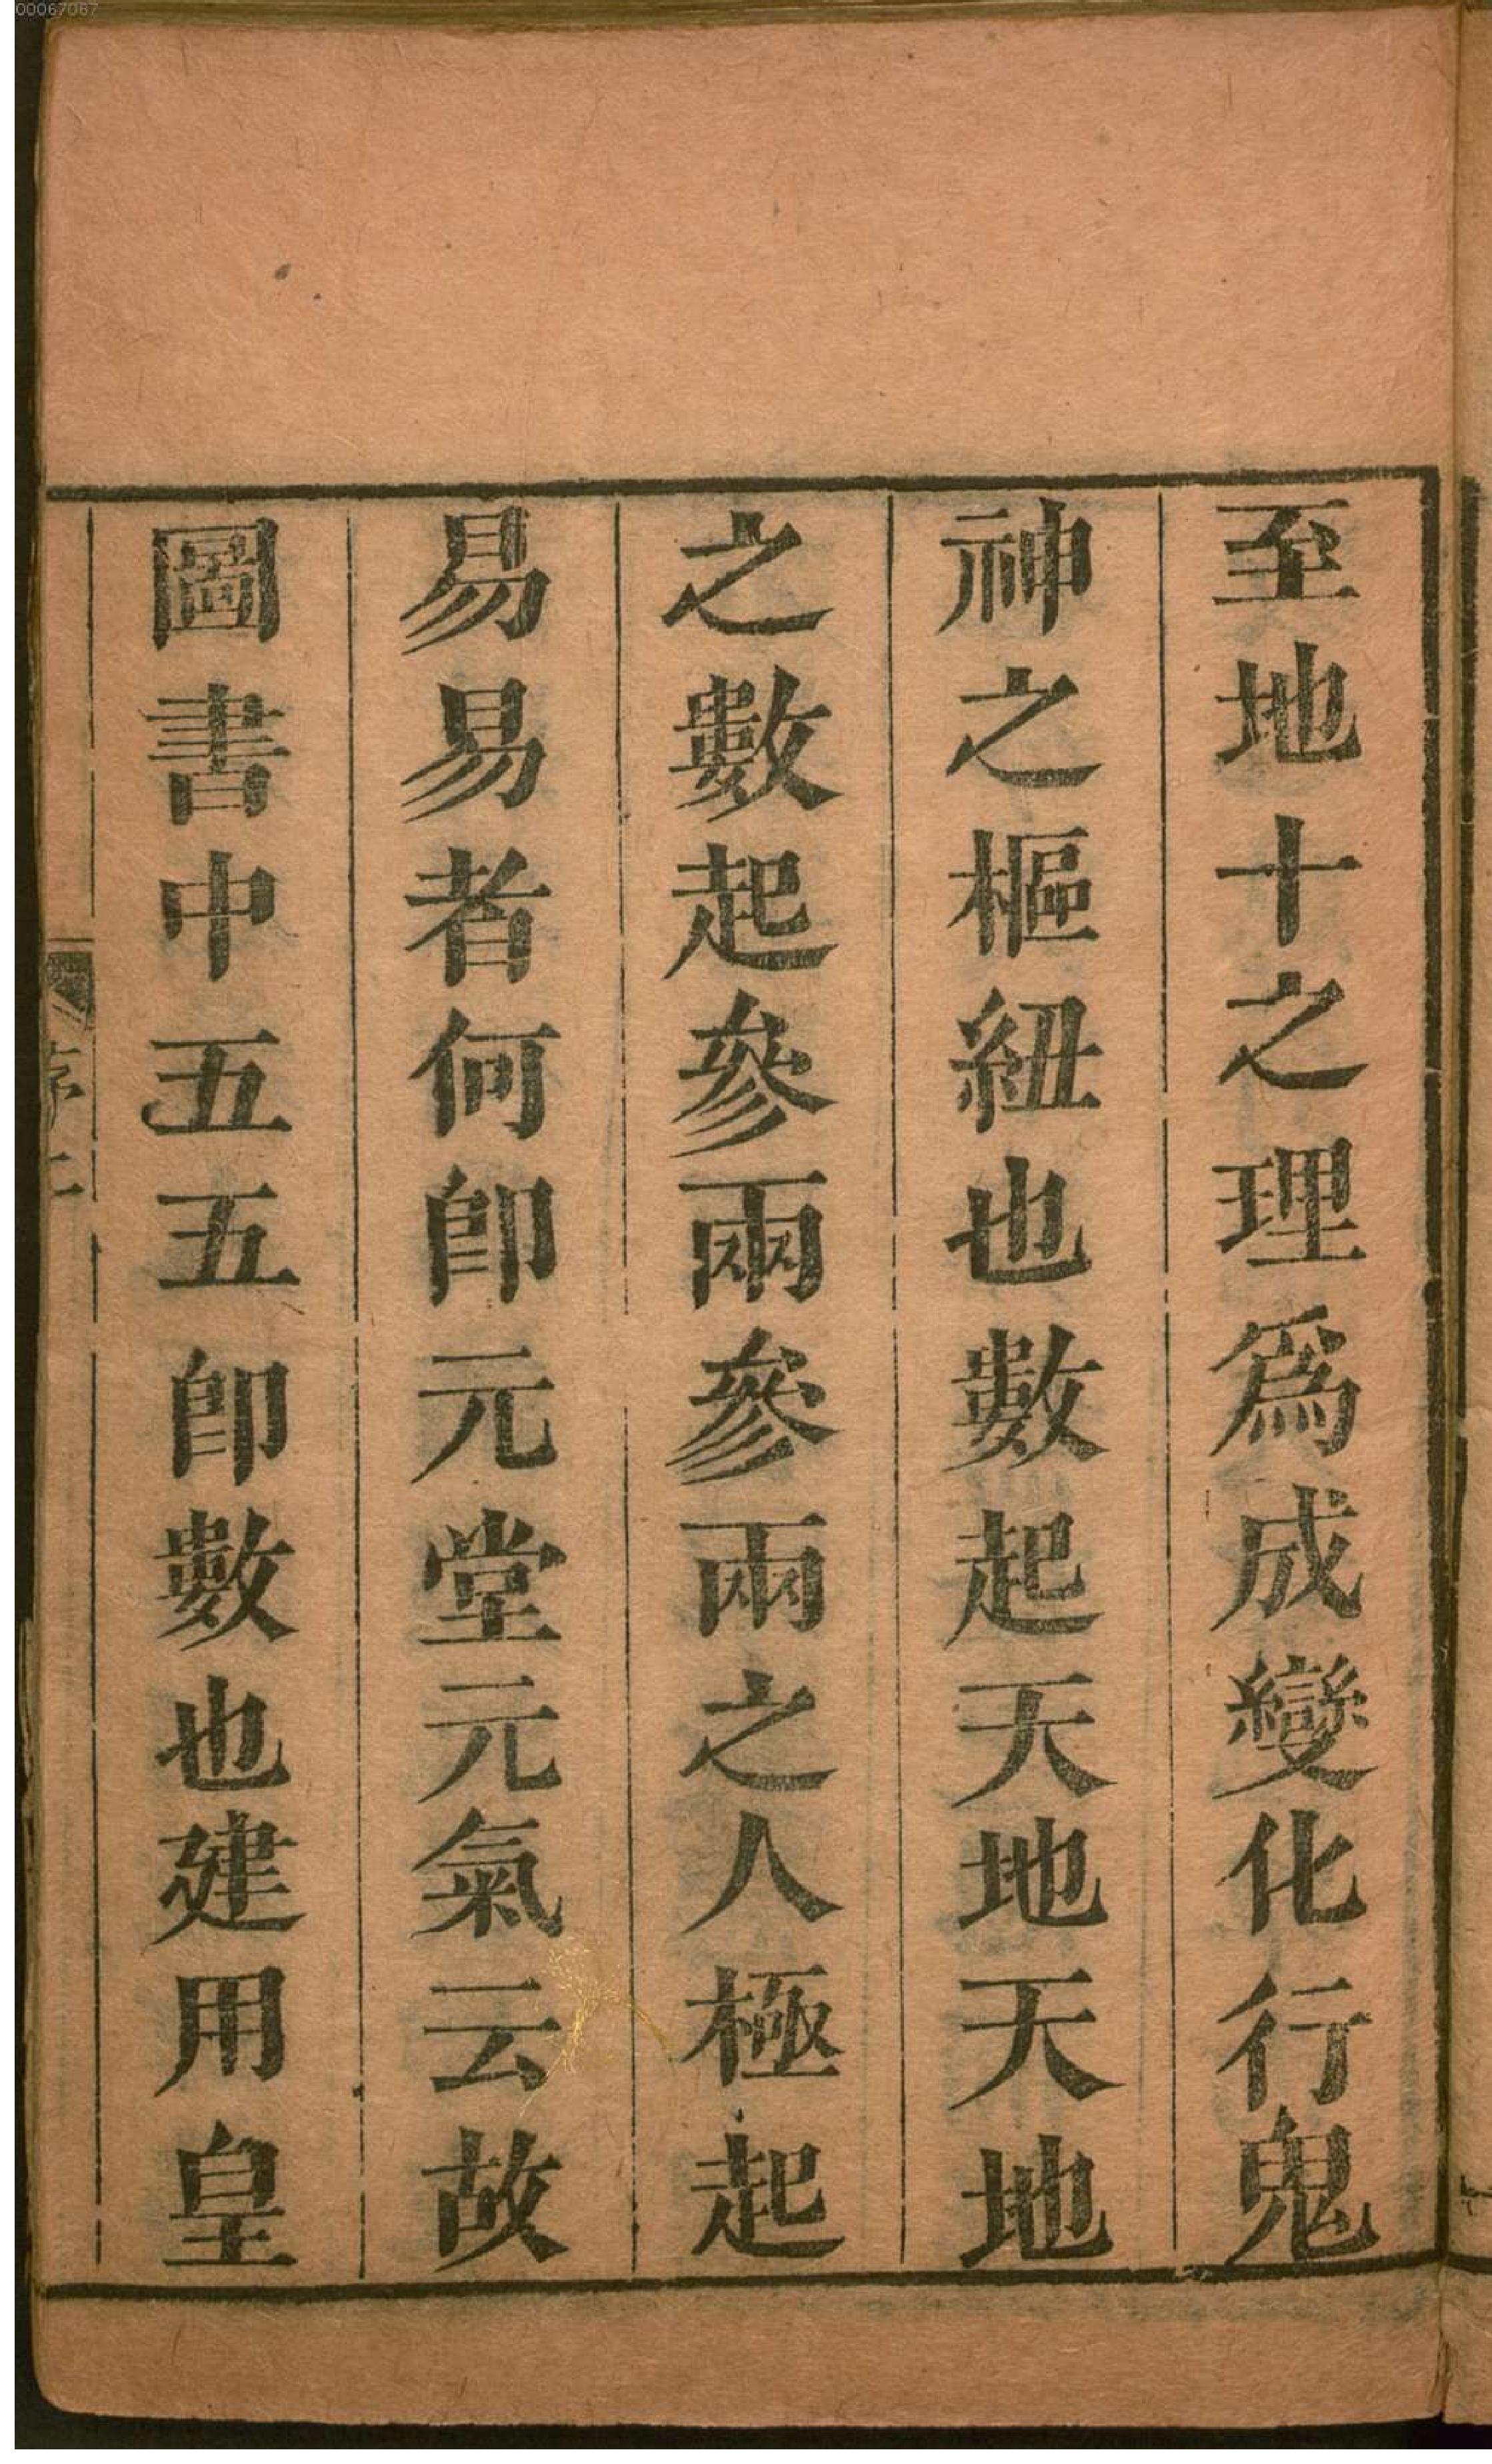 至地十之理爲成變化行鬼
神之樞紐也數起天地天地
之數起參兩參兩之人極起
易易者何卽元堂元氣云故
圖書中五五卽數也建用皇
序二
00067087